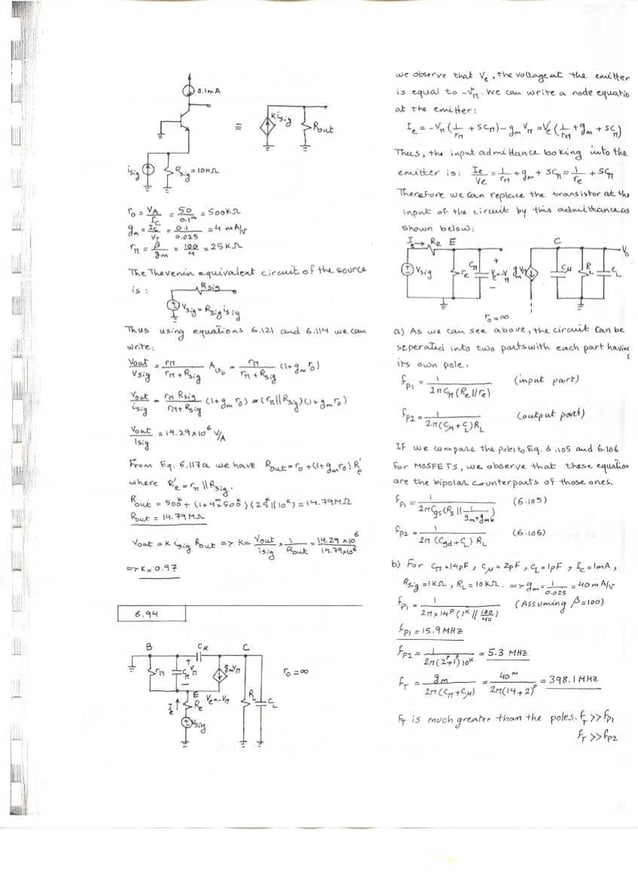 0.1mA
isig
Rsig=10KΩ
≡
Kisig
Rout
ro = VA/IC = 50/0.1m = 500KΩ
gm = IC/VT = 0.1/0.025 = 4 mA/V
rπ = β/gm = 100/4 = 25KΩ
The Thevenin equivalent circuit of the source
is :
Rsig
Vsig=Rsig isig
Thus using equations 6.121 and 6.114 we can
write:
Vout/Vsig = rπ/(rπ+Rsig) Avo = rπ/(rπ+Rsig) (1+gm ro)
Vout/isig = rπ Rsig/(rπ+Rsig) (1+gm ro) = (rπ||Rsig)(1+gm ro)
Vout/Isig = 14.29×10⁶ V/A
From Eq. 6.117a we have Rout=ro+(1+gm ro) R'e
where R'e = rπ || Rsig.
Rout = 500k + (1+4m×500k)(25k||10k) = 14.79MΩ
Rout = 14.79MΩ
Vout = K isig Rout => K = Vout/isig × 1/Rout = 14.29×10⁶/14.79×10⁶
=> K = 0.97
6.94
B
Cμ
C
rπ
Cπ
Vπ
gmVπ
ro=∞
E
Ie
Re
Ve=-Vπ
RL
CL
Vsig
we observe that Ve, the voltage at the emitter
is equal to -Vπ. We can write a node equatio
at the emitter:
Ie = -Vπ(1/rπ + sCπ) - gm Vπ = Ve(1/rπ + gm + sCπ)
Thus, the input admittance looking into the
emitter is: Ie/Ve = 1/rπ + gm + sCπ = 1/re + sCπ
Therefore we can replace the transistor at the
input of the circuit by this admittance as
shown below:
Ie
Re
E
C
Vo
Vsig
re
Cπ
Ve=-Vπ
gmVπ
Cμ
RL
CL
ro=∞
a) As we can see above, the circuit can be
seperated into two parts with each part having
its own pole.
fP1 = 1/(2π Cπ (Re||re)) (input part)
fP2 = 1/(2π(Cμ+CL)RL) (output part)
If we compare the poles to Eq. 6.105 and 6.106
for MOSFETS, we observe that these equation
are the bipolar counterparts of those ones.
fP1 = 1/(2πCgs(Rs||1/(gm+gmb))) (6.105)
fP2 = 1/(2π(Cgd+CL)RL) (6.106)
b) For Cπ=14pF, Cμ=2pF, CL=1pF, IC=1mA,
Rsig=1KΩ, RL=10KΩ. => gm = 1/0.025 = 40mA/V
fP1 = 1/(2π×14p(1k||100/40)) (Assuming β=100)
fP1 = 15.9MHz
fP2 = 1/(2π(2+1)p 10k) = 5.3 MHz
fT = gm/(2π(Cπ+Cμ)) = 40m/(2π(14+2)p) = 398.1MHz
fT is much greater than the poles. fT >> fP1
fT >> fP2